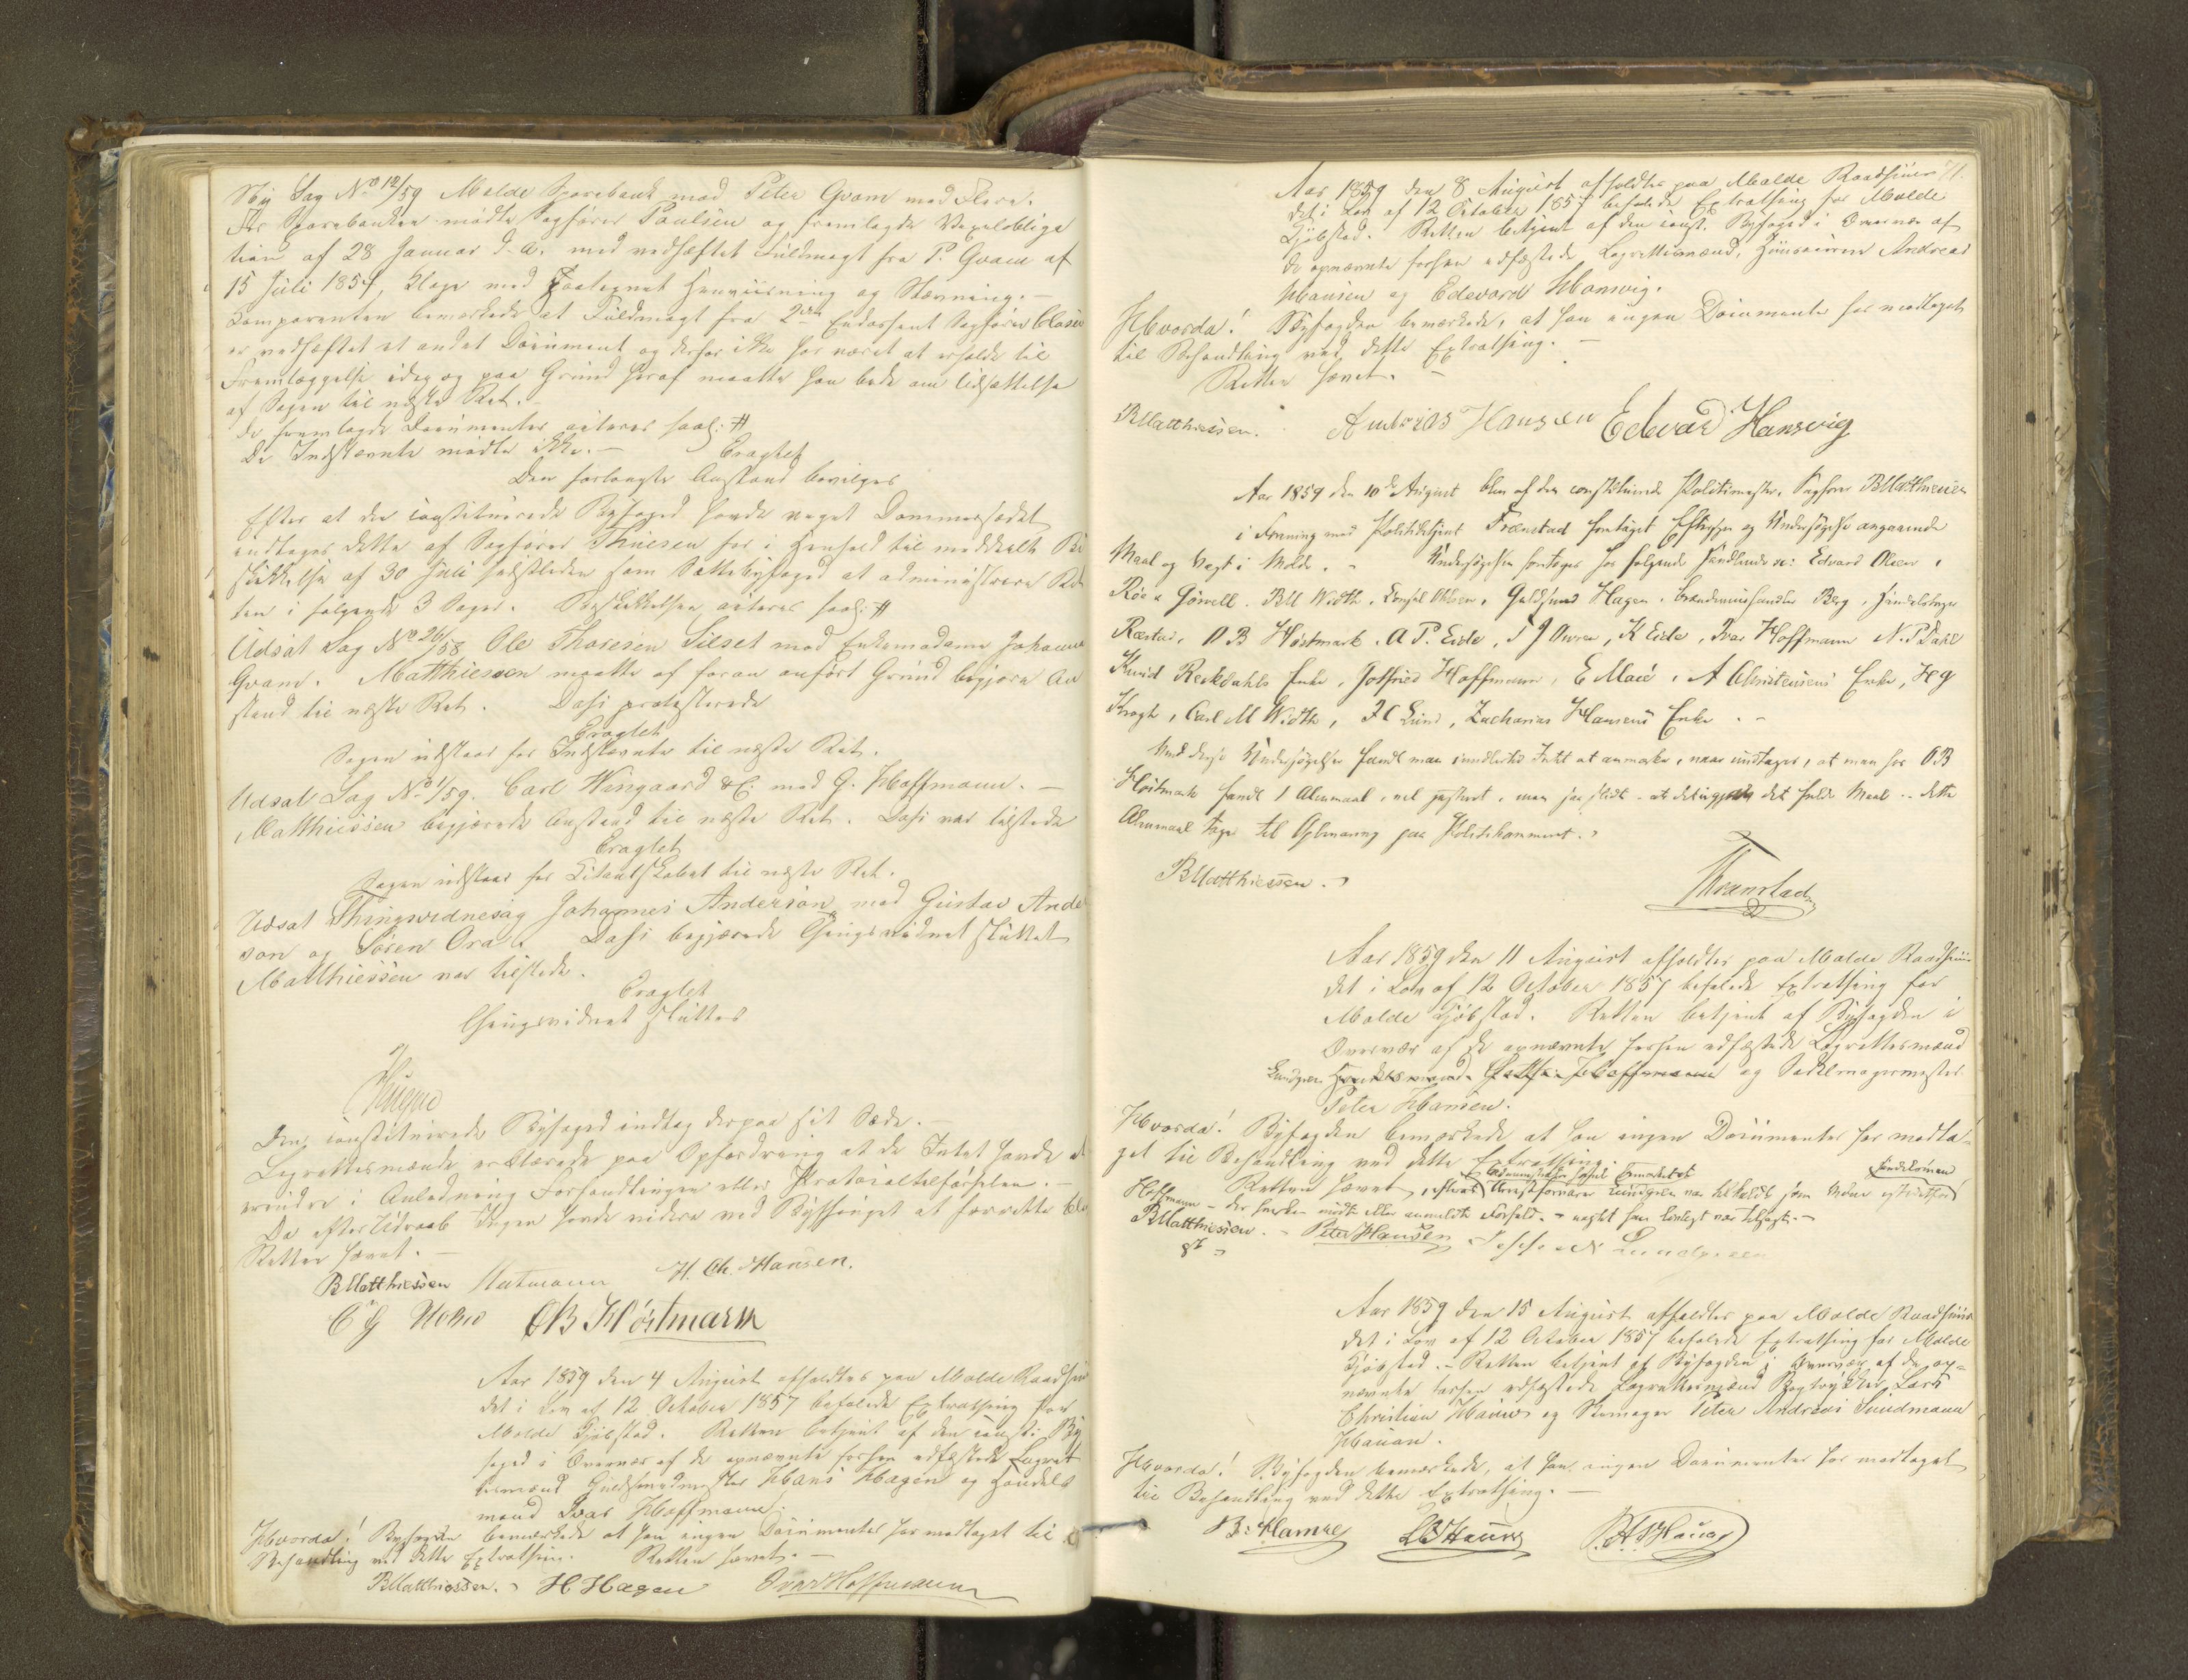 Ny Sag No 12/59 Molde Sparebank mod Peter Gram med Flere.
For Sparebanken mødte Sagfører Paulsen og fremlagde Vexelobliga
tion af 28 Januar d. A. med vedhæftet Fuldmagt fra P. Gram af
15 Juli 1854, Klage med paategnet Henviisning og Stævning.
Comparenten bemærkede at Fuldmagt fra 2den Endossent Sagfører
er vedhæftet et andet Document og derfor ikke har været at erholde til
Fremlæggelse idag og paa Grund heraf maatte han bede om Udsættelse
af Sagen til næste Ret.
De fremlagte Documenter acteres saal: #
De Indstævnte mødte ikke. —
Eragtet
Den forlangte Anstand bevilges
Efter at den constituerede Byfoged havde veget Dommersædet
indtoges dette af Sagfører Thuesen for i Henhold til meddeelt Be
skikkelse af 30 Juli sidstleden som Sættebyfoged at administrere Ret
ten i følgende 3 Sager. Beskikkelsen acteres saal: #
Udsat Sag No 26/58 Ole Thoresen Silset mod Enkemadame Johanna
Gram. Matthiessen maatte af foran anført Grund begjære An
stand til næste Ret. Dahl protesterede
Eragtet
Sagen udstaar for Indstævnte til næste Ret.
Udsat Sag No 1/59. Carl Wingaard & C: mod G. Hoffmann. —
Matthiessen begjærede Anstand til næste Ret. Dahl var tilstede
Eragtet
Sagen udstaar for Citantskabet til næste Ret.
Udsat Thingsvidnesag Johannes Anderson mod Gustav Ander
son og Søren Ora. begjærede Thingsvidnet sluttet
Matthiessen var tilstede.
Eragtet
Thingsvidnet sluttes
Den constituerede Byfoged indtog derpaa sit Sæde. —
Lagrettesmænde erklærede paa Opfordring at de Intet havde at
erindre i Anledning Forhandlingen eller Protocoltilførselen. —
Da efter Udraab Ingen havde videre ved Bythinget at forrette blev
Retten hævet. —
BMatthiessen H. Ch. Hansen.
OB Høstmark
Aar 1859 den 4 August afholdtes paa Molde Raadhuus
det i Lov af 12 October 1857 befalede Extrathing for
Molde Kjøbstad. Retten betjent af den const: By
foged i Overvær af de opnævnte forhen edfæstede Lagret
tesmænd Guldsmedmester Hans Hagen og Handels
mand Ivar Hoffmann.
Hvorda! Byfogden bemærkede at han ingen Documenter har modtaget til
Behandling ved dette Extrathing. Retten hævet. —
BMatthiessen. H Hagen Ivar Hoffmann
Aar 1859 den 8 August afholdtes paa Molde Raadhuus
det i Lov af 12 October 1857 befalede Extrathing for Molde
Kjøbstad. Retten betjent af den const. Byfoged i Overvær af
de opnævnte forhen edfæstede Lagrettesmænd, Andreas
Hansen og Edevard Hansvig.
Hvorda! Byfogden bemærkede, at han ingen Documenter har modtaget
til Behandling ved dette Extrathing. —
Retten hævet. —
BMatthiessen. Andreas Hansen Edvard Hansvig
Aar 1859 den 10de August blev af den constituerede Politimester, Sagfører BMatthiessen
i Forening med Politibetjent Transtad foretaget Eftersyn og Undersøgelse angaaende
Maal og Vægt i Molde. - Undersøgelsen foretoges hos følgende Handlende s: Edvard Olsen,
Röe & Görvell. BM Width. Consul Ohlsen, Guldsmed Hagen. Brændeviinshandler Berg,
Ræstad, OB Høstmark. A P. Eide, K Eide, Ivar Hoffmann N. P Dahl
Knud Rekdahls Enke, Gotfried Hoffmann, E Maie, A Christensens Enke, H g
Krogh, Carl M Width, J C Lund, Zacharias Hansens Enke. -
Ved disse Undersøgelser fandt man imidlertid Intet at anmærke, naar undtages, at man hos OB
Høstmark fandt 1 Alenmaal, vel justeret, men saa slidt at det ei udgjorde det fulde Maal - dette
Alenmaal toges til Opbevaring paa Politikammeret.
BMatthiessen. Transtad
Aar 1859 den 11 August afholdtes paa Molde Raadhuus
det i Lov af 12 October 1857 befalede Extrathing for
Molde Kjøbstad. Retten betjent af Byfogden i
Overvær af de opnævnte forhen edfæstede Lagrettesmænd
Lundgren Handelsmand Hoffmann og Sadelmagermester
Peter Hansen.
Hvorda! Byfogden bemærkede at han ingen Documenter har modta-
get til Behandling ved dette Extrathing.
Retten hævet, efterat Arrestforvarer Lundgren var tilkaldt som Vidne istedetfor
Hoffmann - der hverken mødte eller anmeldte Forfald. - uagtet han lovligt var tilsagt. -
BMatthiessen. Peter Hansen Lundgreen
Aar 1859 den 15 August afholdtes paa Molde Raadhuus
det i Lov af 12 October 1857 befalede Extrathing for Molde
Kjøbstad. - Retten betjent af Byfogden i Overvær af de op-
nævnte forhen edfæstede Lagrettesmænd Bogtrykker Lars
Christian Hauw og Skomager Peter Andreas Sundmann
Hauan.
Hvorda! Byfogden bemærkede, at han ingen Documenter har modtaget
til Behandling ved dette Extrathing. —